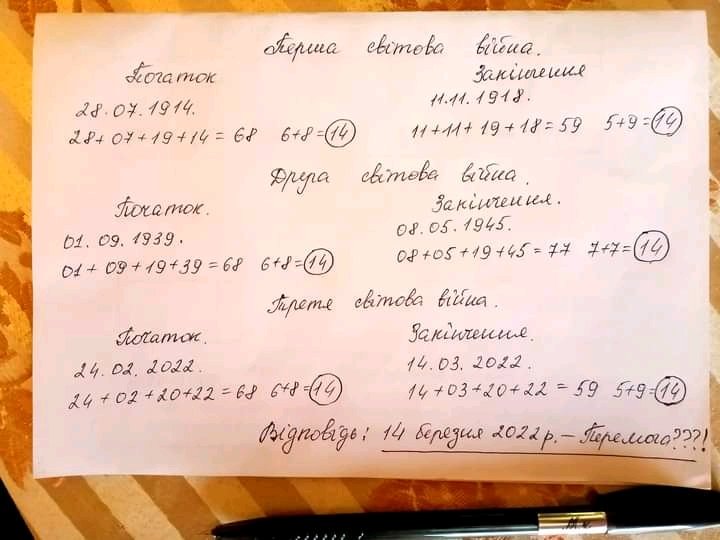 Перша світова війна.
Початок
Закінчення
28.07.1914.
11.11.1918.
28+07+19+14=68 6+8=14
11+11+19+18=59 5+9=14
Друга світова війна.
Початок.
Закінчення.
01.09.1939.
08.05.1945.
01+09+19+39=68 6+8=14
08+05+19+45=77 7+7=14
Третя світова війна.
Початок.
Закінчення.
24.02.2022.
14.03.2022.
24+02+20+22=68 6+8=14
14+03+20+22=59 5+9=14
Відповідь: 14 березня 2022р.–Перемога???!